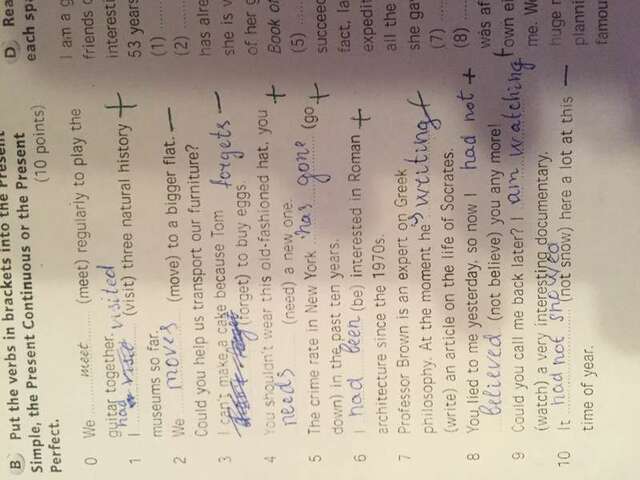 B Put the verbs in brackets into the Present
Simple, the Present Continuous or the Present
Perfect. (10 points)
0 We meet (meet) regularly to play the
guitar together.
had visited
1 I (visit) three natural history +
museums so far.
2 We moves (move) to a bigger flat. —
Could you help us transport our furniture?
3 I can't make a cake because Tom forgets —
(forget) to buy eggs.
4 You shouldn't wear this old-fashioned hat, you +
needs (need) a new one.
5 The crime rate in New York has gone (go +
down) in the past ten years.
6 I had been (be) interested in Roman +
architecture since the 1970s.
7 Professor Brown is an expert on Greek
philosophy. At the moment he is writing +
(write) an article on the life of Socrates.
8 You lied to me yesterday, so now I had not +
believed (not believe) you any more!
9 Could you call me back later? I am watching +
(watch) a very interesting documentary.
10 It had not showed (not snow) here a lot at this —
time of year.
D Rea
each spa
I am a g
friends o
interesti
53 years
(1)
(2)
has alre
she is v
of her g
Book of
(5)
succeed
fact, la
expedit
all the
she gav
(7)
(8)
was af
town en
me. W
huge n
planni
famou